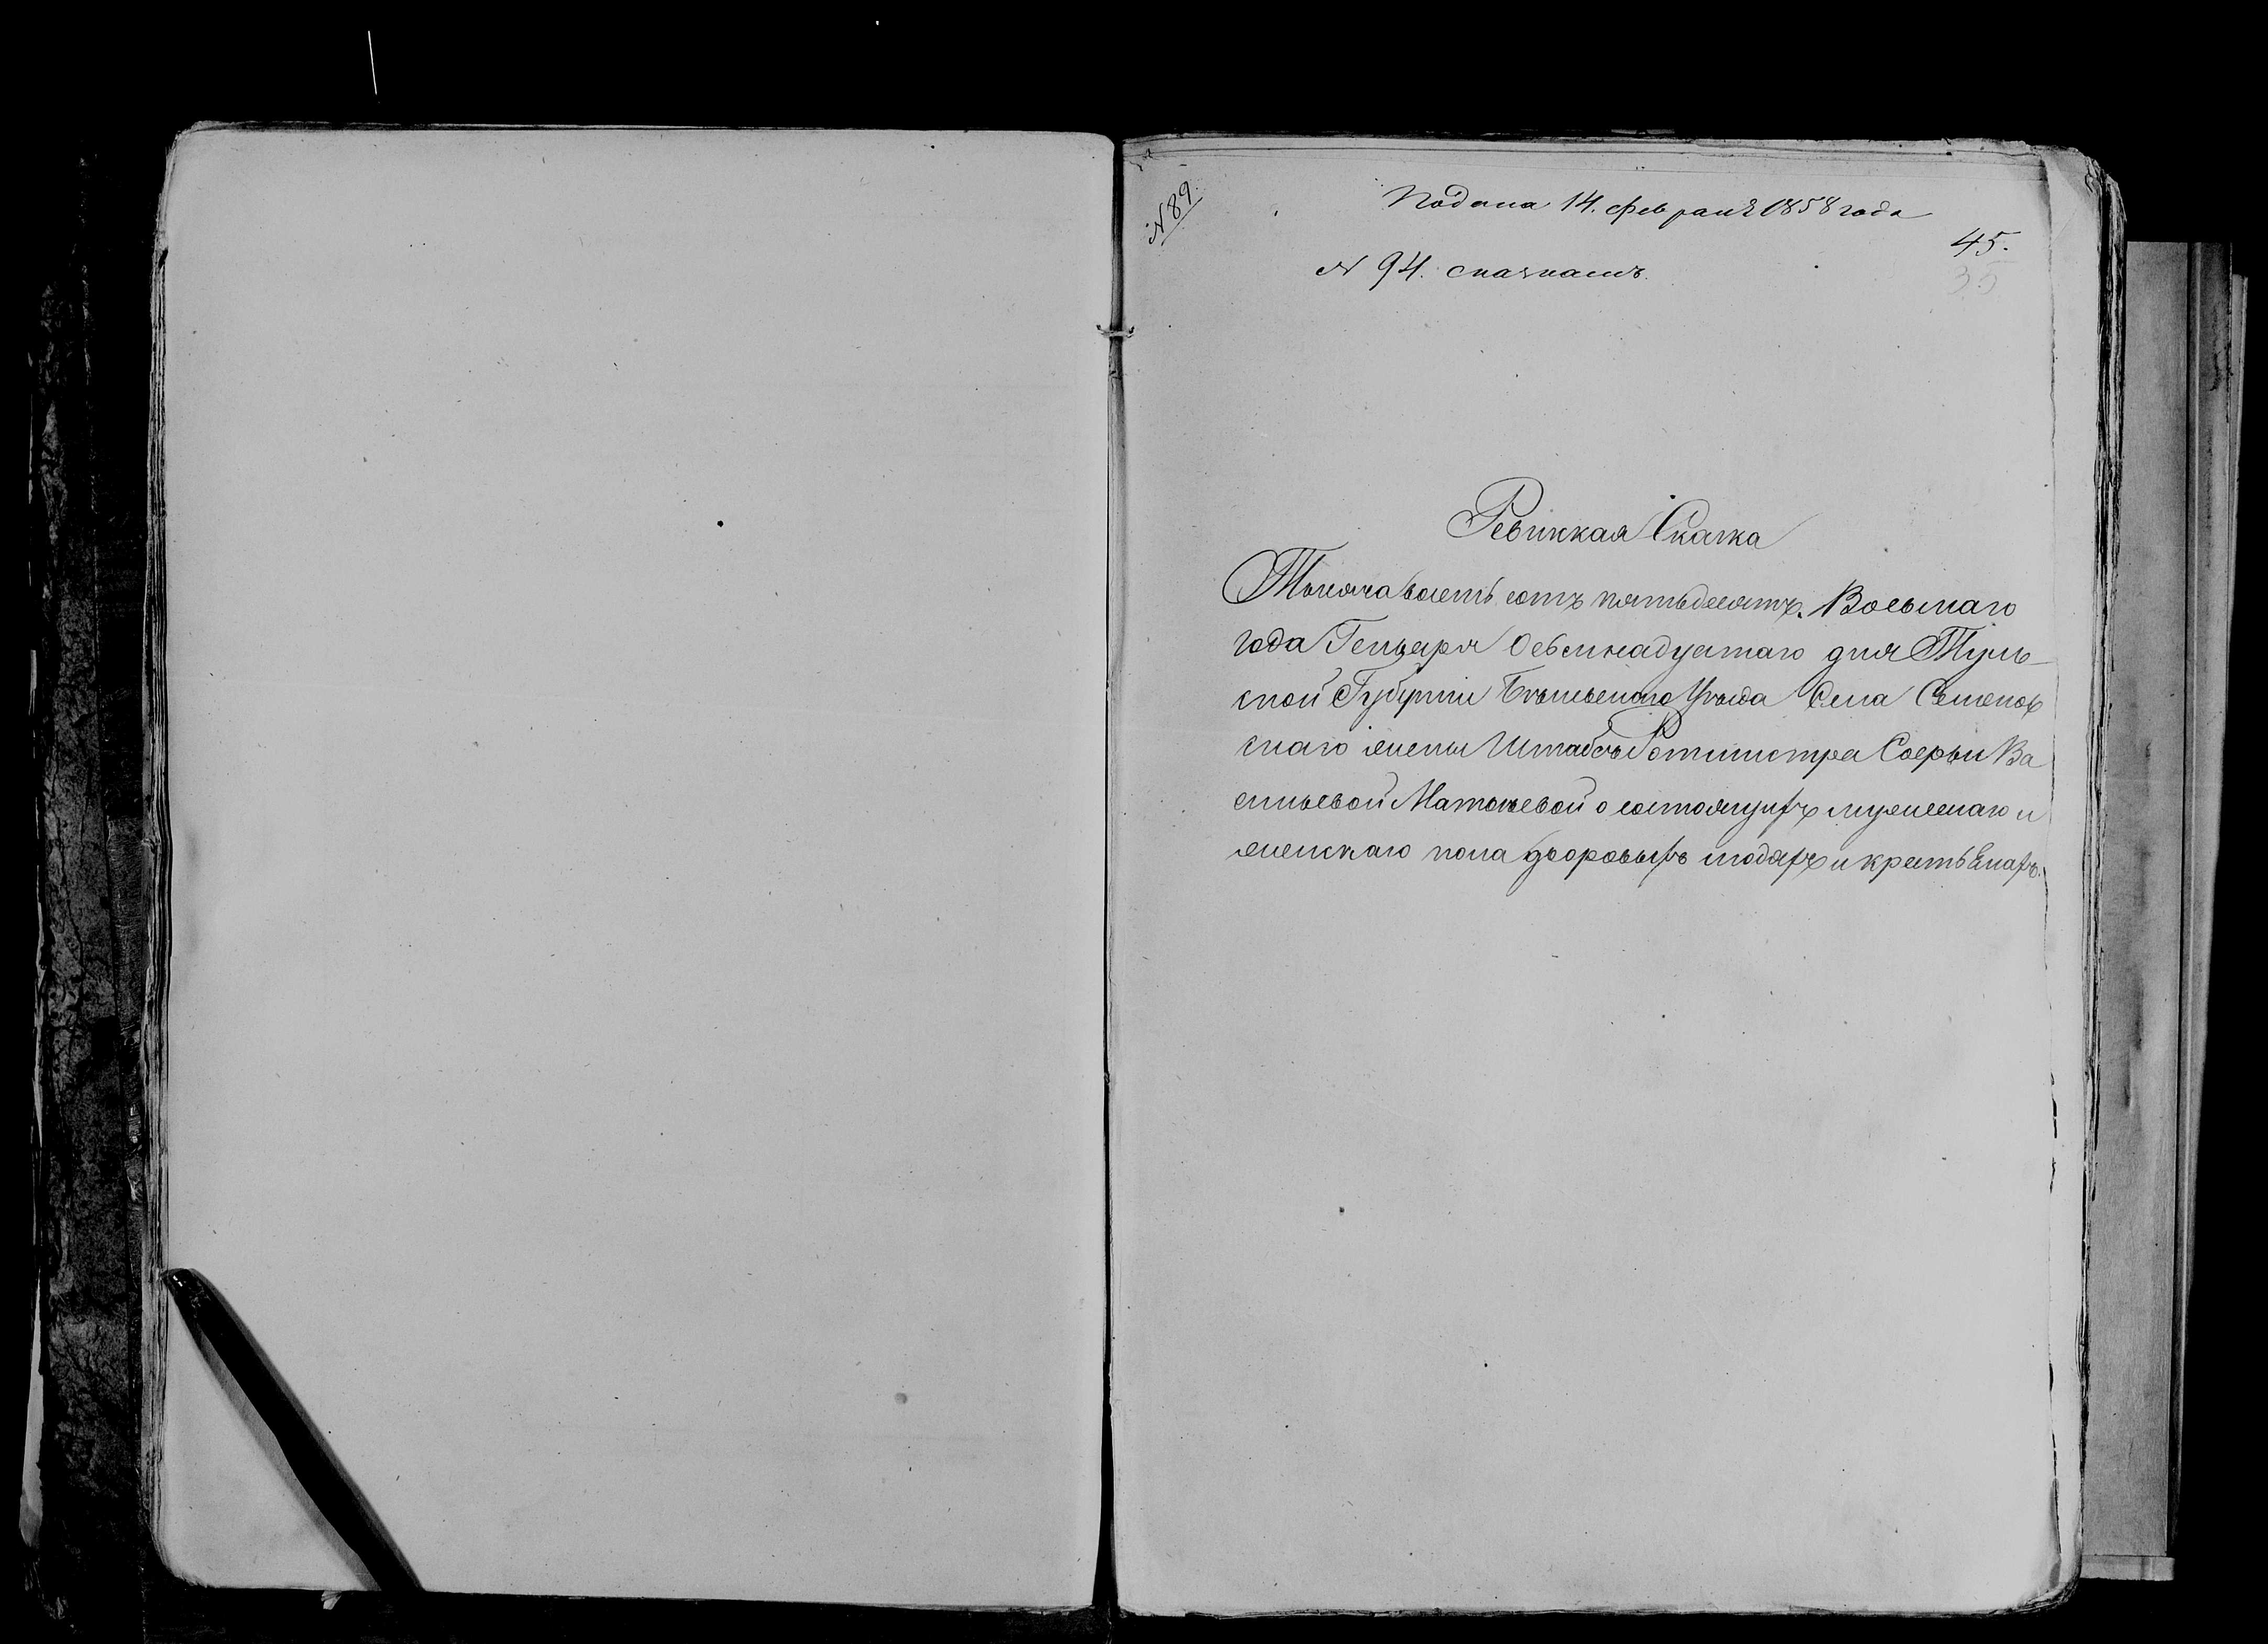 N 89.
Подана 14. февраля 1858 года
45.
35
N 94. сказкамъ.
Ревижкая Сказка
Тысяча восемь сотъ пятьдесятъ Восьмаго
года Генваря Осьмнадцатаго дня Туль-
ской Губерніи Бѣлевскаго Уѣзда Села Семенов
скаго жены Штабсъ Ротмистра Софьи Ва
сильевой Матвеевой о состоящихъ мужескаго и
женскаго пола дворовыхъ людяхъ и крестьянахъ.